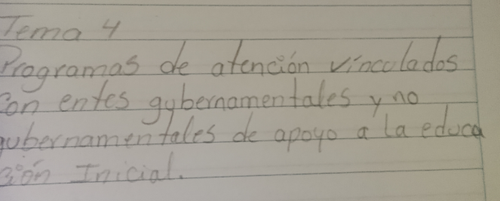 Tema 4
Programas de atención vinculados
con entes gubernamentales y no
gubernamentales de apoyo a la educa
ción Inicial.